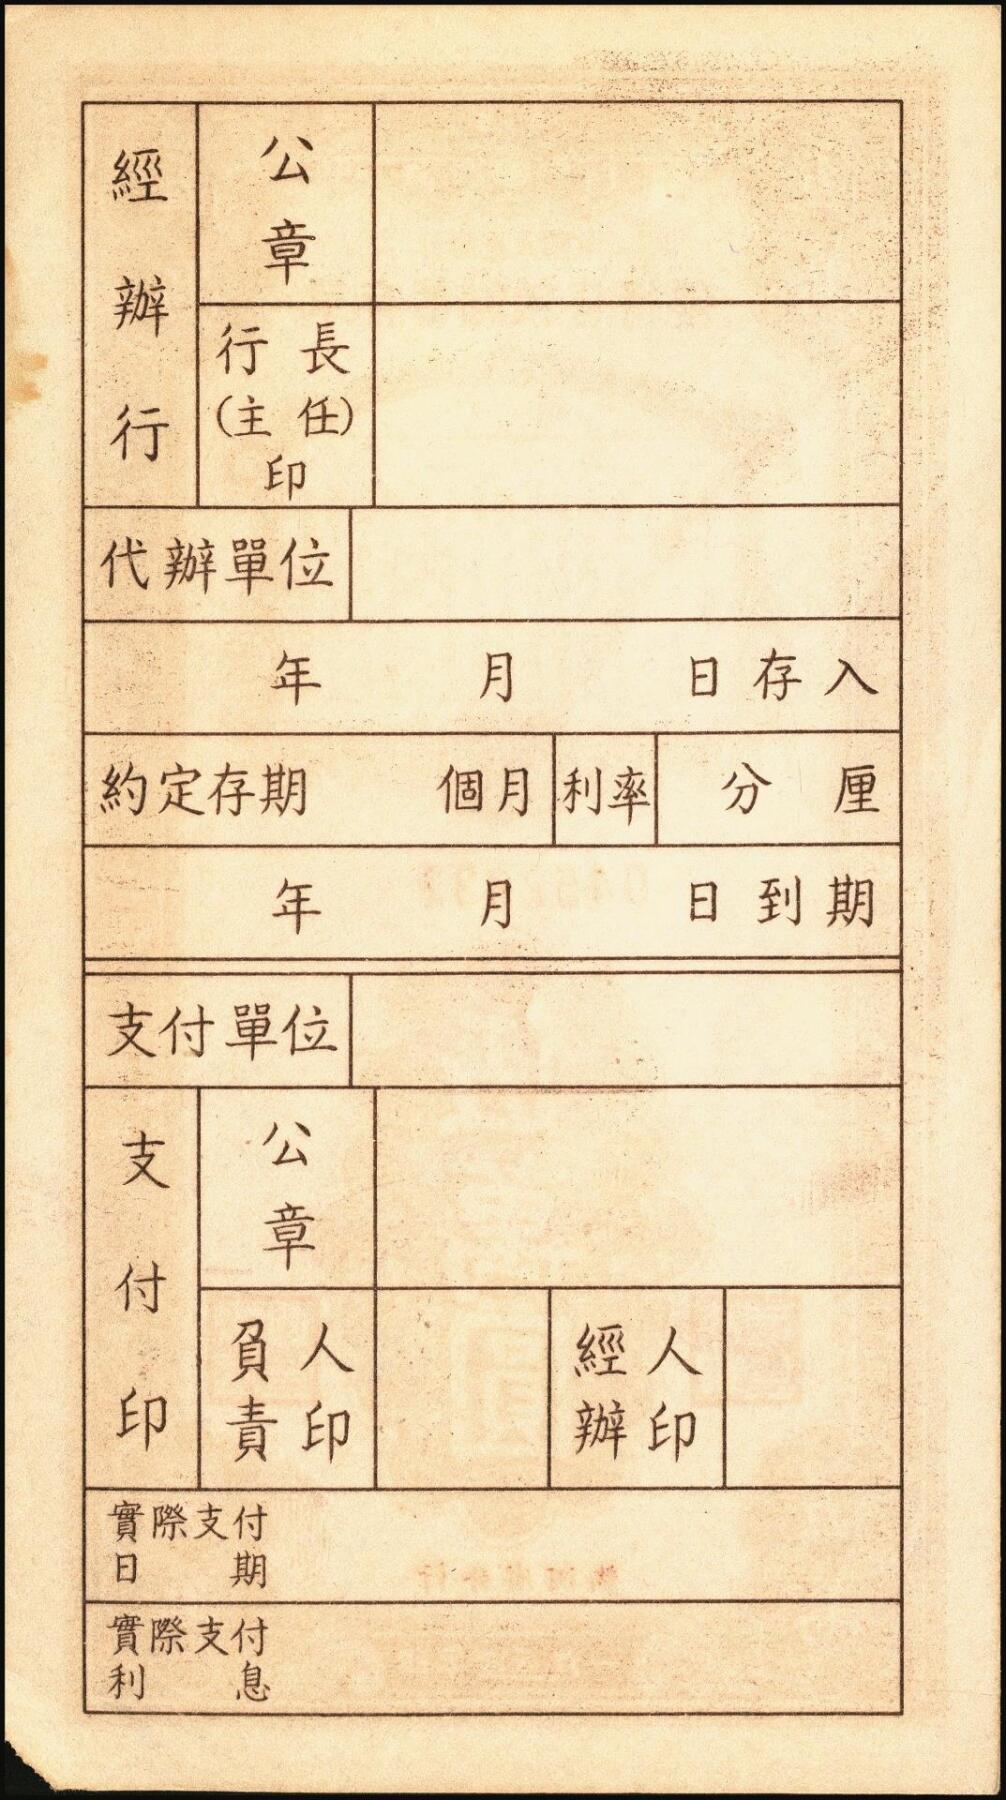 經辦行
公章
行長
(主任)
印
代辦單位
年 月 日存入
約定存期 個月 利率 分 厘
年 月 日到期
支付單位
支付印
公章
負責人印
經辦人印
實際支付
日期
實際支付
利息